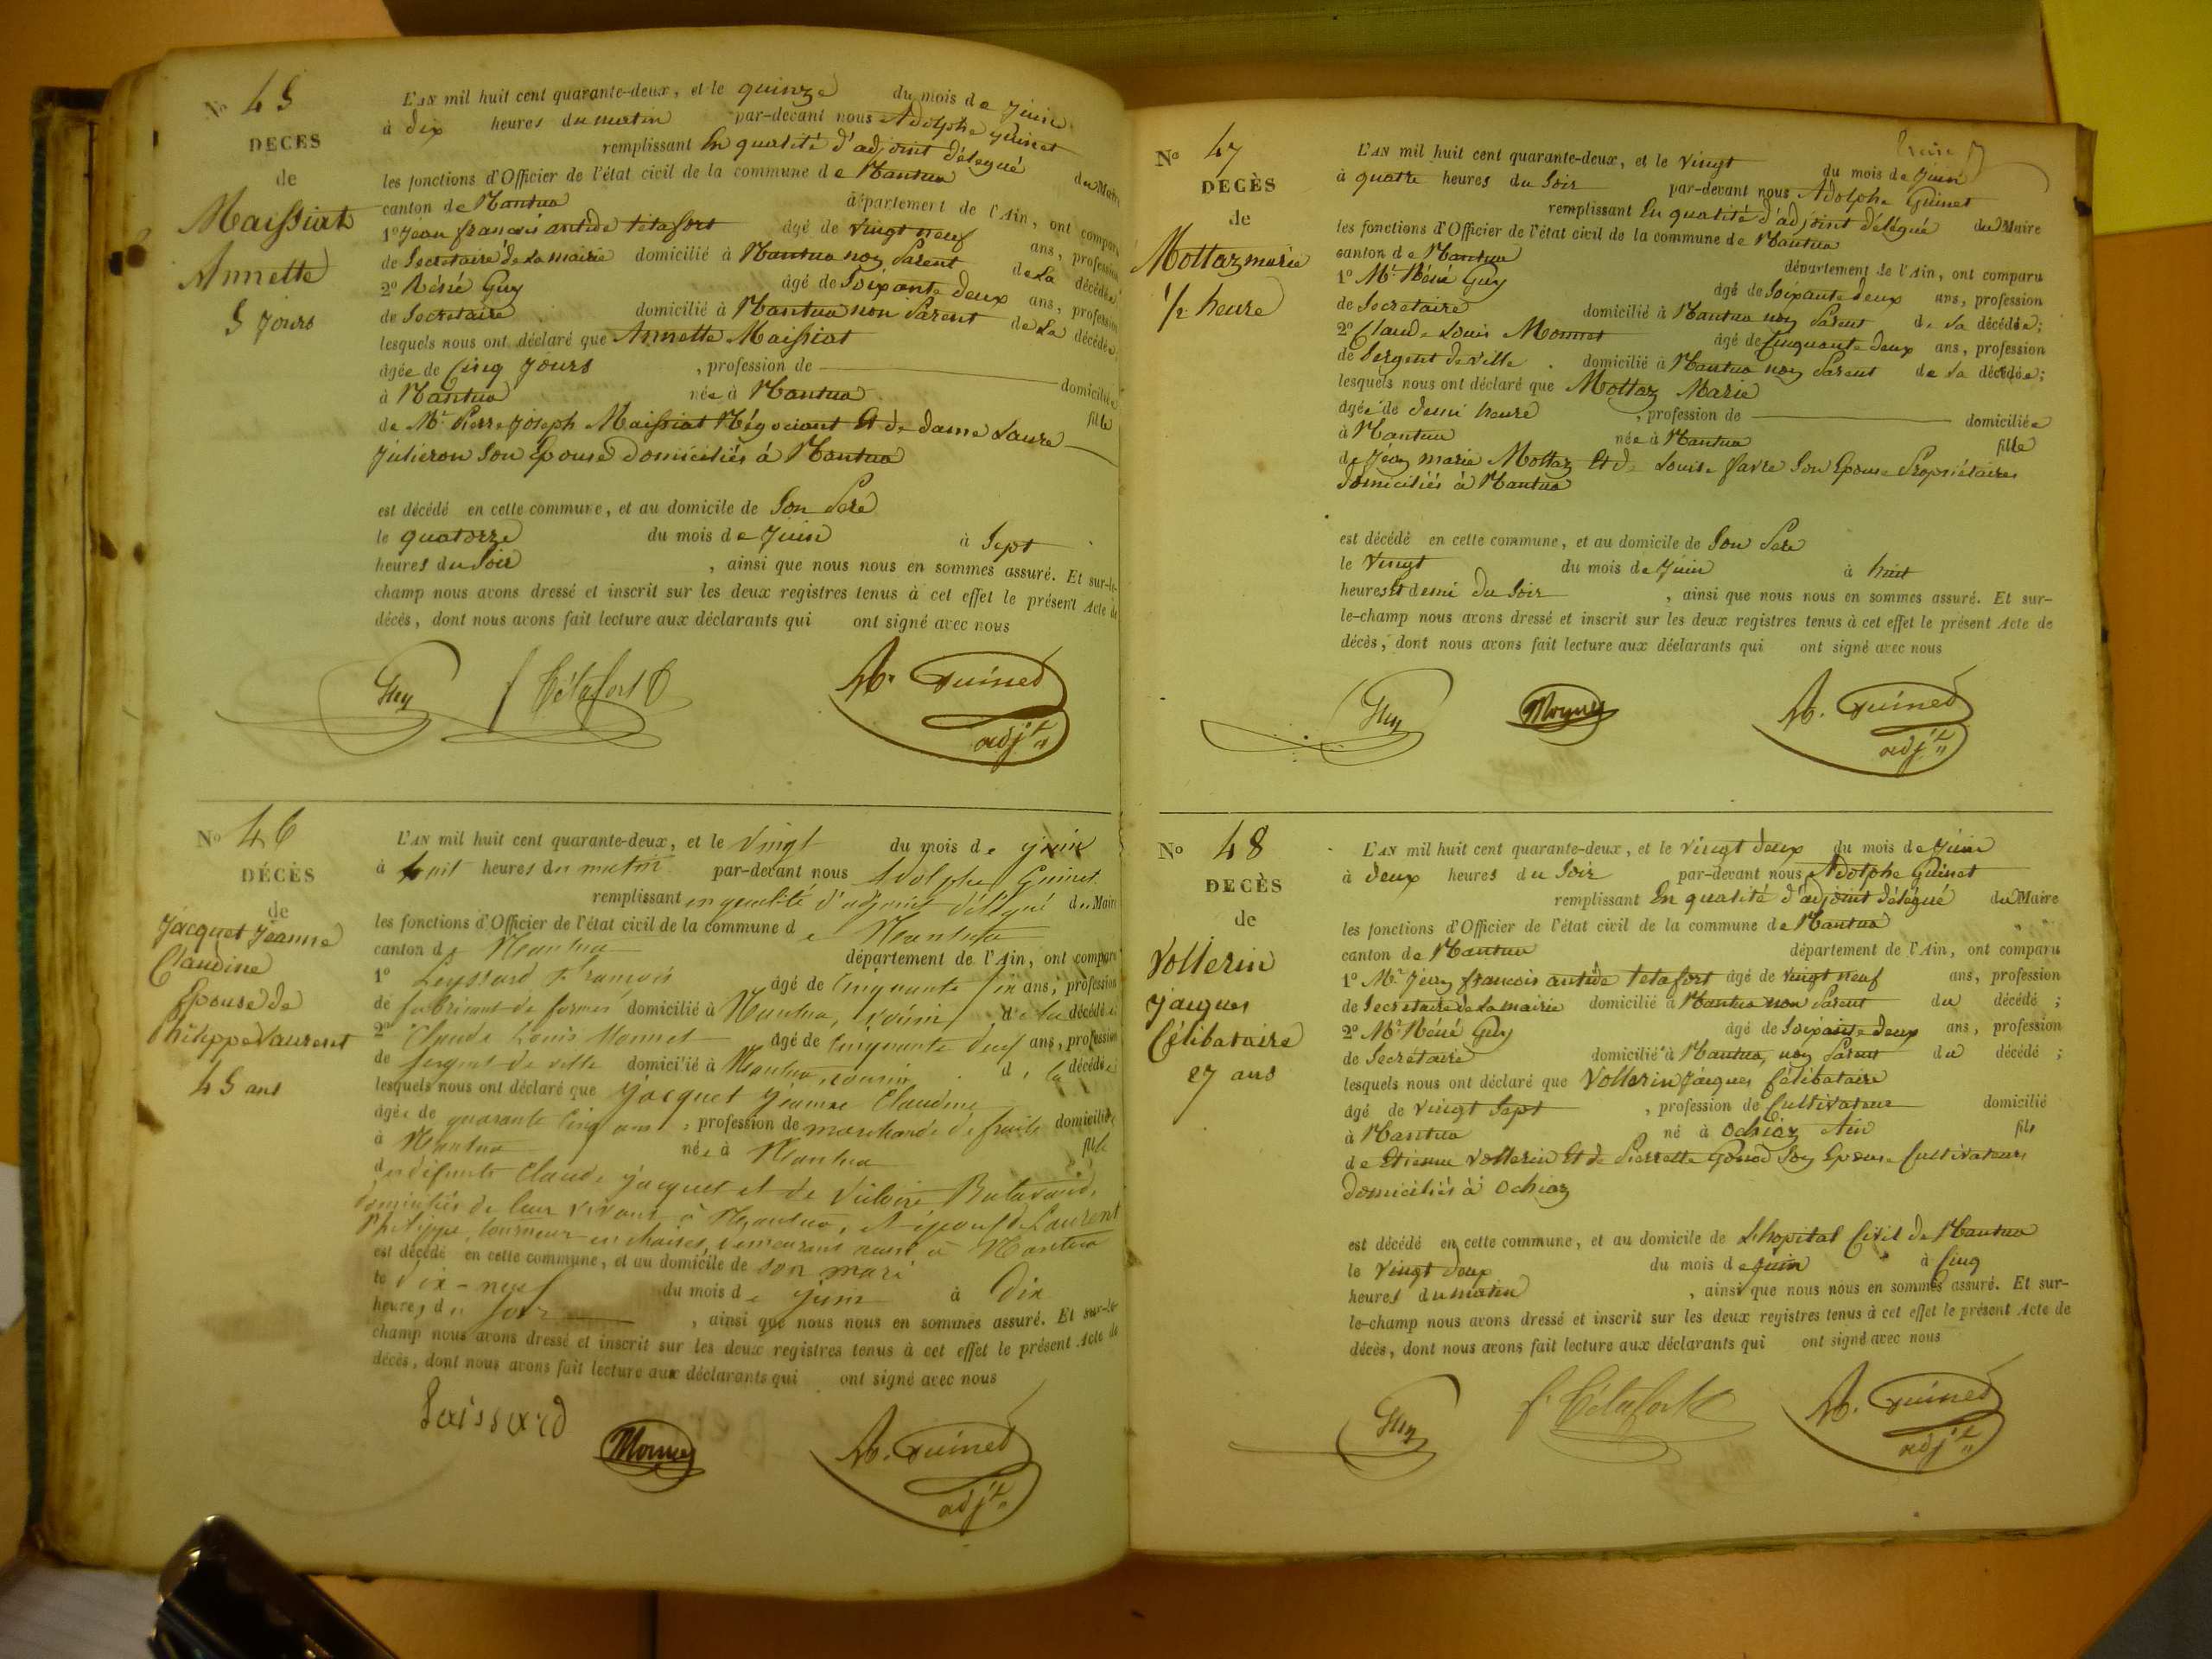 No 45
DÉCÈS
de
Maissiat
Annette
5 Jours
L'AN mil huit cent quarante-deux, et le quinze du mois de Juin
à dix heures du matin par-devant nous Adolphe Guinet
remplissant En qualité d'adjoint délégué du Maire
les fonctions d'Officier de l'état civil de la commune de Nantua
canton de Nantua département de l'Ain, ont comparu
1º Jean françois antide tetafort âgé de Vingt neuf ans, profession
de Secretaire de la mairie domicilié à Nantua non Parent de La décédée
2º Réné Guy âgé de Soixante deux ans, profession
de Secretaire domicilié à Nantua non Parent de La décédée
lesquels nous ont déclaré que Annette Maissiat
âgée de Cinq Jours, profession de domiciliée
à Nantua née à Nantua fille
de Mr. Pierre Joseph Maissiat Négociant Et de dame Laure
Julieron Son Epouse Domiciliés à Nantua
est décédé en cette commune, et au domicile de Son Pere
le quatorze du mois de Juin à Sept
heures du Soir, ainsi que nous nous en sommes assuré. Et sur-le-
champ nous avons dressé et inscrit sur les deux registres tenus à cet effet le présent Acte de
décès, dont nous avons fait lecture aux déclarants qui ont signé avec nous
Guy f Tétafort A. Guinet
adjt
No 46
DÉCÈS
de
Jacquet Jeanne
Claudine
Epouse de
Philippe Laurent
45 ans
L'AN mil huit cent quarante-deux, et le Vingt du mois de juin
à huit heures du matin par-devant nous Adolphe Guinet
remplissant en qualité d'adjoint délégué du Maire
les fonctions d'Officier de l'état civil de la commune de Nantua
canton de Nantua département de l'Ain, ont comparu
1º Leyssard François âgé de Cinquante ans, profession
de fabricant de formes domicilié à Nantua, voisin de la décédée
2º Claude Louis Monnet âgé de Cinquante deux ans, profession
de sergent de ville domicilié à Nantua, de la décédée
lesquels nous ont déclaré que Jacquet Jeanne Claudine
âgée de quarante Cinq ans, profession de marchande de fruits domiciliée
à Nantua née à Nantua fille
des défunts Claude Jacquet et de Victoire
domiciliés de leur vivant à Nantua, Laurent
Philippe, tourneur en chaises, demeurant aussi à Nantua
est décédé en cette commune, et au domicile de son mari
le dix-neuf du mois de juin à Dix
heures du soir, ainsi que nous nous en sommes assuré. Et sur-le-
champ nous avons dressé et inscrit sur les deux registres tenus à cet effet le présent Acte de
décès, dont nous avons fait lecture aux déclarants qui ont signé avec nous
Laissard Monnet A. Guinet
adjt
No 47
DÉCÈS
de
Mottaz marie
1/2 heure
L'AN mil huit cent quarante-deux, et le Vingt du mois de Juin
à quatre heures du Soir par-devant nous Adolphe Guinet
remplissant En qualité d'adjoint délégué du Maire
les fonctions d'Officier de l'état civil de la commune de Nantua
canton de Nantua département de l'Ain, ont comparu
1º Mr. Réné Guy âgé de Soixante deux ans, profession
de Secretaire domicilié à Nantua non Parent de La décédée;
2º Claude Louis Monnet âgé de Cinquante deux ans, profession
de Sergent de Ville domicilié à Nantua non Parent de La décédée;
lesquels nous ont déclaré que Mottaz Marie
âgée de demi heure, profession de domiciliée
à Nantua née à Nantua fille
de Jean marie Mottaz Et de Louise favre Son Epouse Propriétaires
Domiciliés à Nantua
est décédé en cette commune, et au domicile de Son Pere
le Vingt du mois de Juin à huit
heures Et demi du Soir, ainsi que nous nous en sommes assuré. Et sur-
le-champ nous avons dressé et inscrit sur les deux registres tenus à cet effet le présent Acte de
décès, dont nous avons fait lecture aux déclarants qui ont signé avec nous
Guy Monnet A. Guinet
adjt
No 48
DÉCÈS
de
Vollerin
Jacques
Célibataire
27 ans
L'AN mil huit cent quarante-deux, et le vingt deux du mois de Juin
à deux heures du Soir par-devant nous Adolphe Guinet
remplissant En qualité d'adjoint délégué du Maire
les fonctions d'Officier de l'état civil de la commune de Nantua
canton de Nantua département de l'Ain, ont comparu
1º Mr. Jean françois antide tetafort âgé de vingt neuf ans, profession
de Secretaire de La mairie domicilié à Nantua non Parent du décédé;
2º Mr. Réné Guy âgé de Soixante deux ans, profession
de Secretaire domicilié à Nantua, non Parent du décédé;
lesquels nous ont déclaré que Vollerin Jacques Célibataire
âgé de vingt Sept, profession de Cultivateur domicilié
à Nantua né à Ochiaz Ain fils
de Etienne Vollerin Et de Pierrette Son Epouse Cultivateurs
Domiciliés à Ochiaz
est décédé en cette commune, et au domicile de L'hopital Civil de Nantua
le Vingt deux du mois de Juin à Cinq
heures du matin, ainsi que nous nous en sommes assuré. Et sur-
le-champ nous avons dressé et inscrit sur les deux registres tenus à cet effet le présent Acte de
décès, dont nous avons fait lecture aux déclarants qui ont signé avec nous
Guy f. Tétafort A. Guinet
adjt